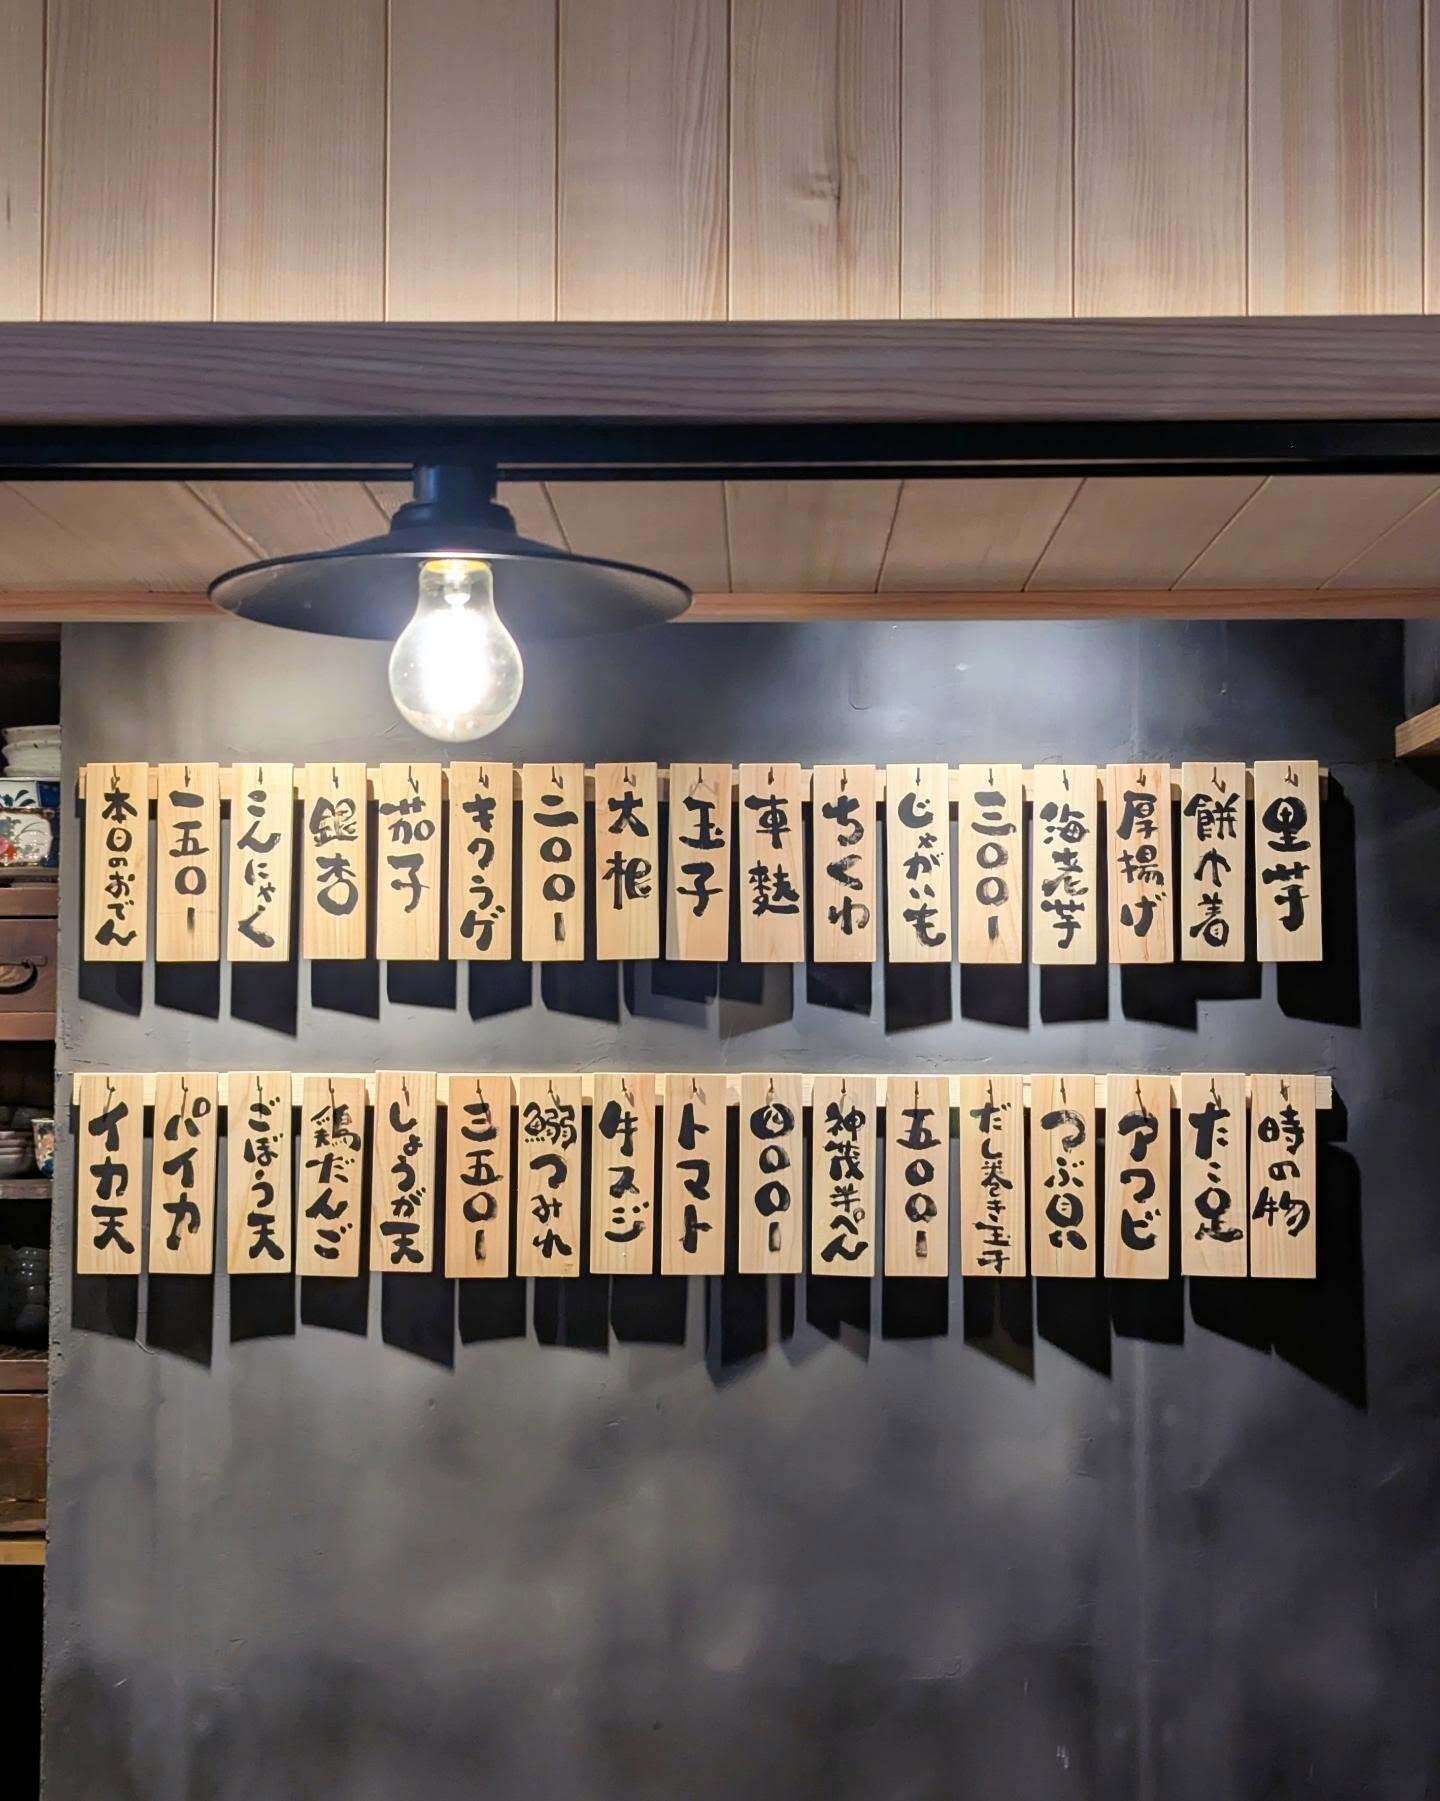 本日のおでん
一五〇-
こんにゃく
銀杏
茄子
キクラゲ
二〇〇-
大根
玉子
車麩
ちくわ
じゃがいも
三〇〇-
海老芋
厚揚げ
餅巾着
里芋
イカ天
パイカ
ごぼう天
鶏だんご
しょうが天
三五〇-
鰯つみれ
牛スジ
トマト
四〇〇-
神茂半ぺん
五〇〇-
だし巻き玉子
つぶ貝
アワビ
たこ足
時の物